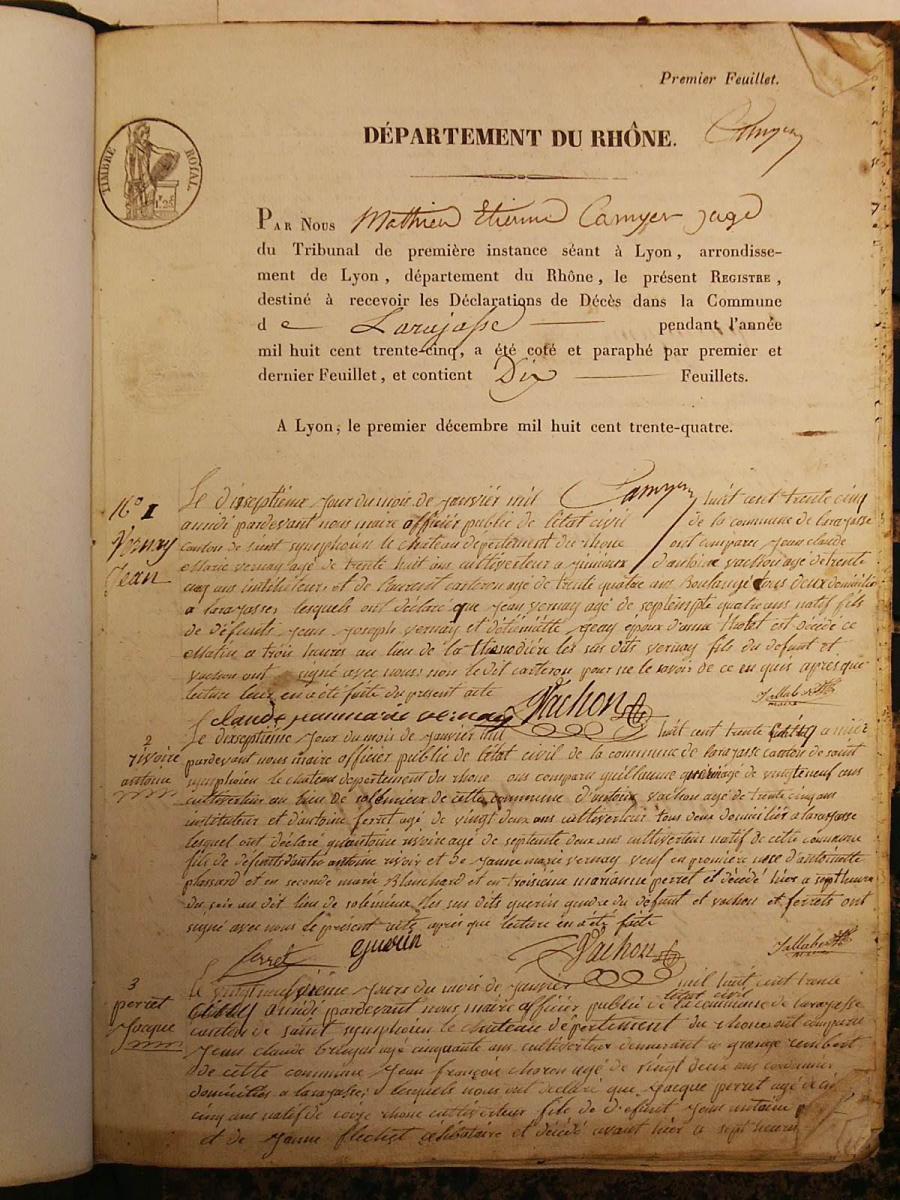 Premier Feuillet.
DÉPARTEMENT DU RHÔNE.
TIMBRE ROYAL
PAR NOUS Mathieu Etienne Camyer juge
du Tribunal de première instance séant à Lyon, arrondisse-
ment de Lyon, département du Rhône, le présent REGISTRE,
destiné à recevoir les Déclarations de Décès dans la Commune
de Larajasse pendant l'année
mil huit cent trente-cinq, a été coté et paraphé par premier et
dernier Feuillet, et contient Dix Feuillets.
A Lyon, le premier décembre mil huit cent trente-quatre.
N° 1
Vernay
Jean
Le dixseptième jour du mois de janvier mil huit cent trente cinq
a midi pardevant nous maire officier public de l'état civil de la commune de larajasse
canton de saint symphorien le chateau département du rhone ont comparu jean claude
Marie vernay agé de trente huit ans cultivateur a d'antoine vachon agé de trente
cinq ans instituteur, et de Laurent carteron agé de trente quatre ans Boulangé tous deux domicilies
a larajasse, lesquels ont déclaré que jean vernay agé de septempte quatre ans natif fils
de défunts jean joseph vernay et geay époux d'anne est décédé ce
Matin a trois heures au lieu de la les sus dits vernay fils du defunt et
vachon ont signé avec nous, non le dit carteron pour ne le savoir de ce enquis après que
lecture leur en a été faite du present acte
claude jeanmarie vernay Vachon Jallabert
maire
2
rivoire
antoine
Le dixseptieme jour du mois de janvier mil huit cent trente cinq a midi
pardevant nous maire officier public de l'état civil de la commune de larajasse canton de saint
symphorien le chateau département du rhone ons comparu guillaume querin agé de vingtneuf ans
cultivateur au lieu de solemieux de cette commune d'antoine vachon agé de trente cinq ans
instituteur et d'antoine ferret agé de vingt deux ans cultivateur tous deux domicilié a larajasse
lesquel ont déclaré qu'antoine rivoire agé de septente deux ans cultivateur natif de cette commune
fils de défunts antoine rivoir et de jeanne marie vernay veuf en première nose d'antoinette
plassard et en seconde marie Blanchard et en troisième marianne perret et décédé hier a sept heure
du soir au dit lieu de solemieux les sus dits querin gendre du défunt et vachon et ferrets ont
signé avec nous le présent acte après que lecture en a été faite
ferret Guerin Vachon Jallabert
maire
3
perret
Jacque
Le vingtneuvième jours du mois de janvier mil huit cent trente
cinq a midi pardevant nous maire officier public de l'état civil de la commune de larajasse
canton de saint symphorien le chateau département du rhone ont comparu
jean claude agé cinquante ans cultivateur demeurant a grange
de cette commune jean françois choron agé de vingt deux ans cordonnier
domicilies a larajasse; lesquels nous ont declaré que jacque perret agé de
cinq ans natif de rhone cultivateur fils de d'efunt jean antoine
et de jeanne flechet célibataire et décédé avant hier a sept heures